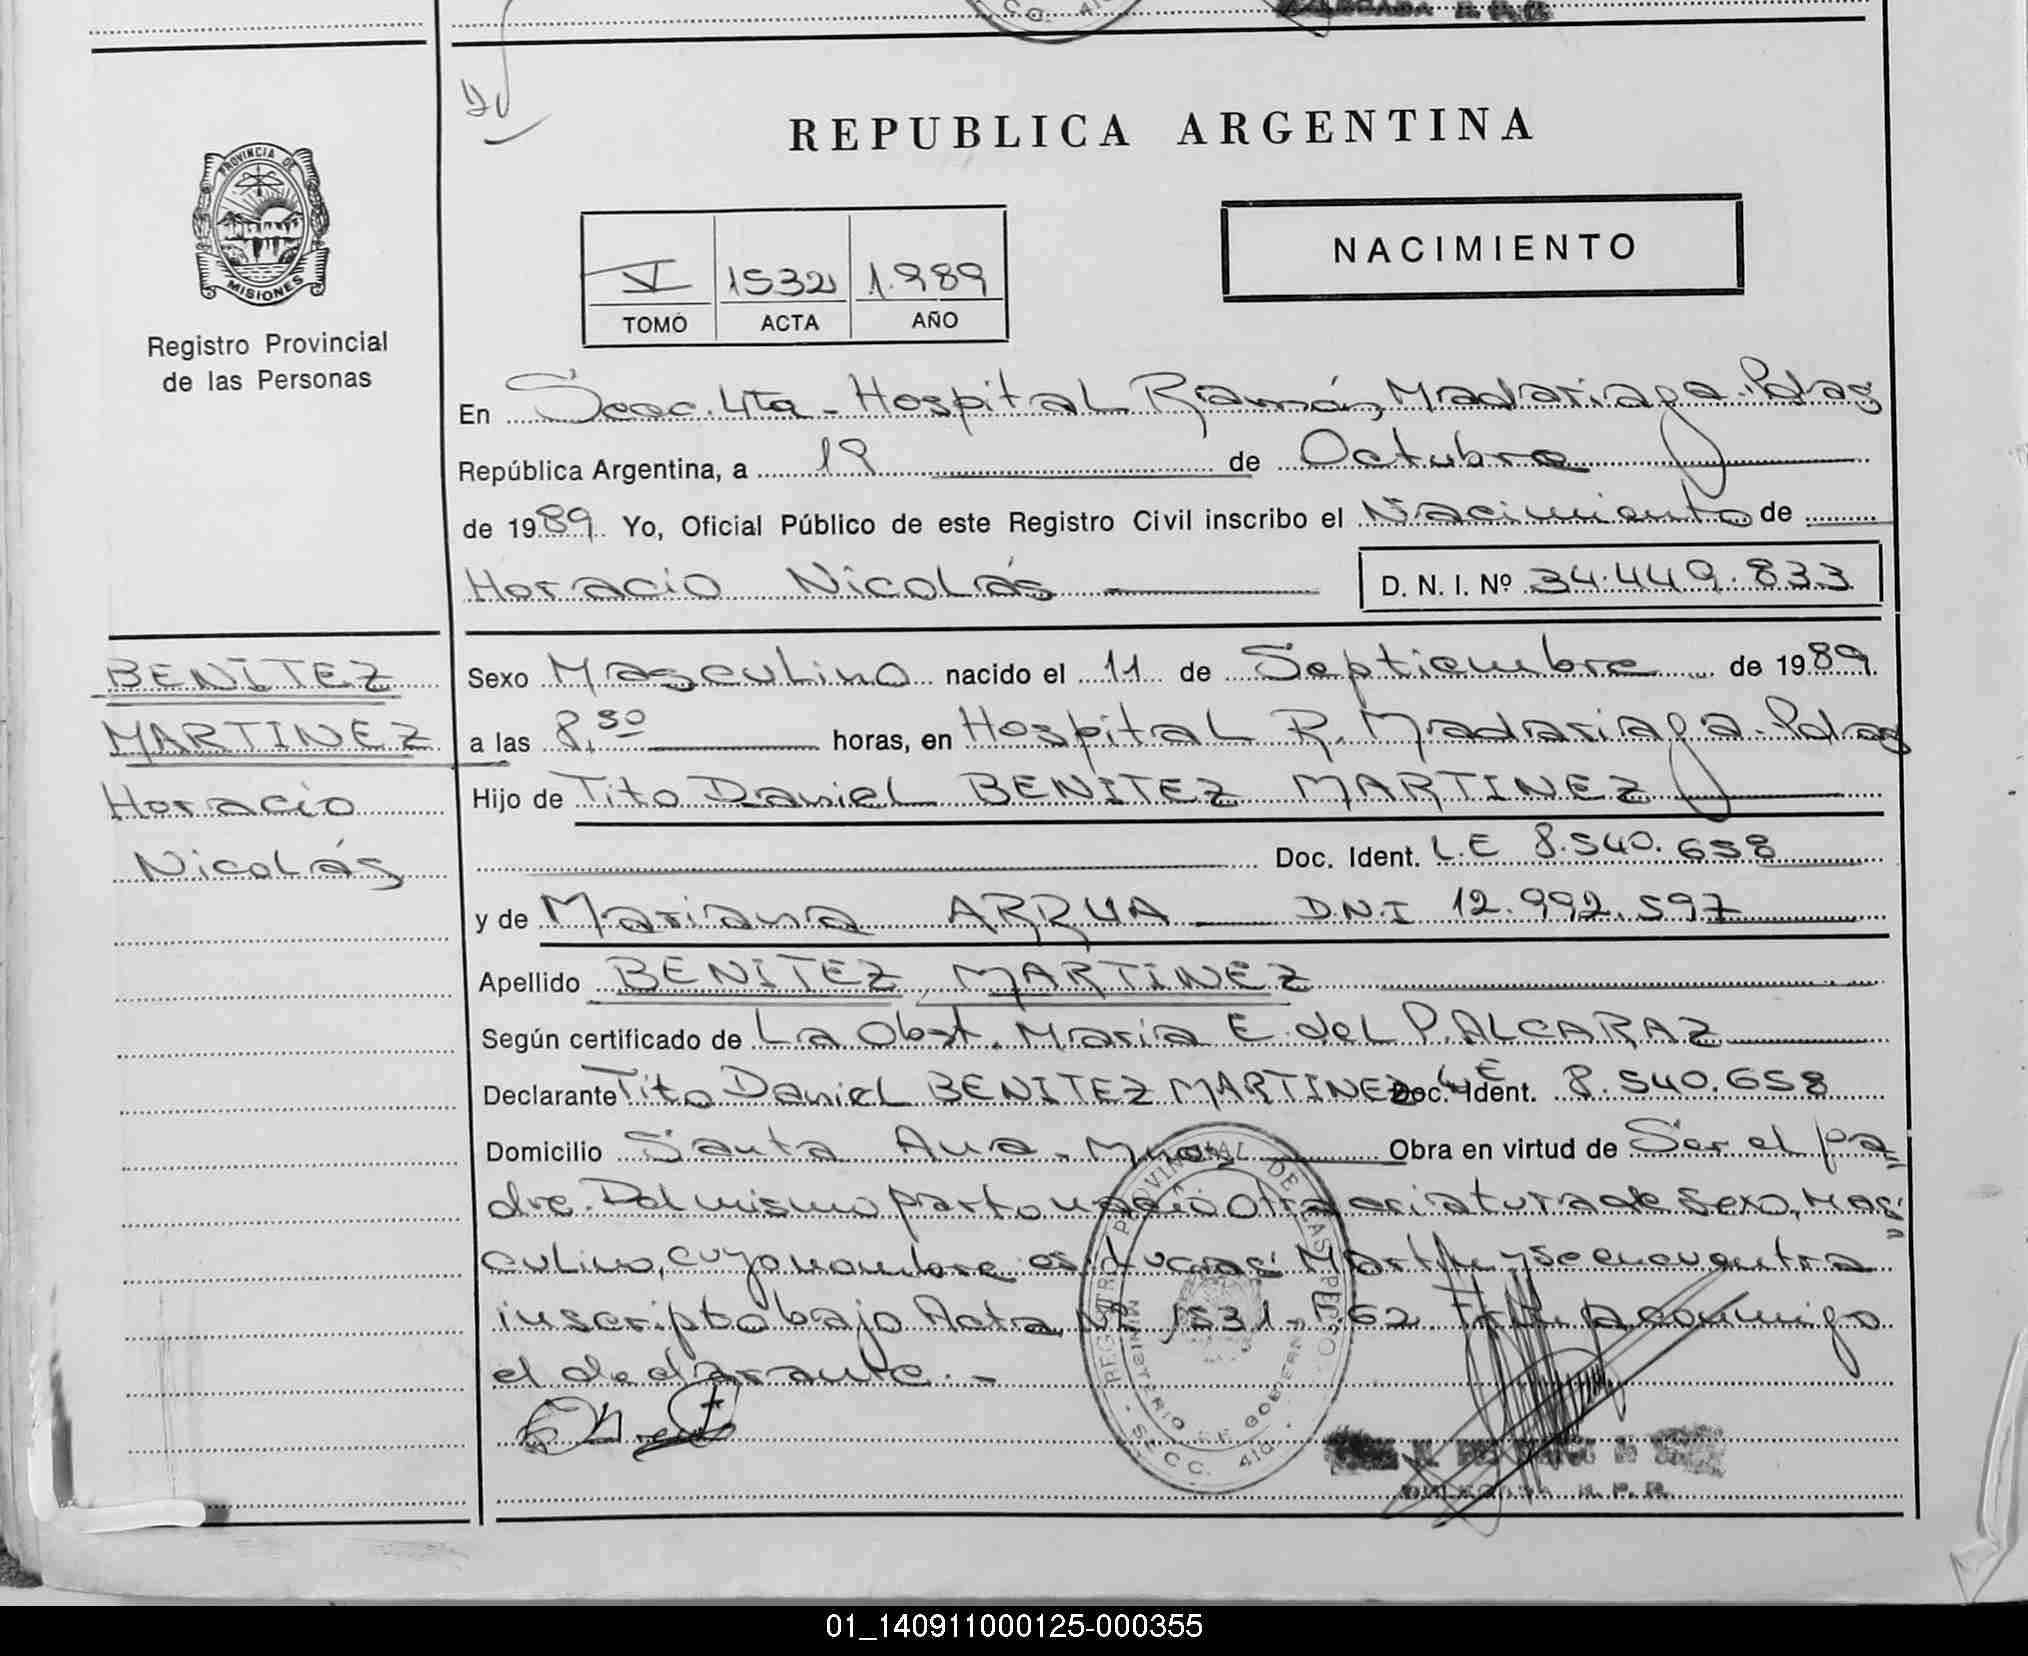 REPUBLICA ARGENTINA
PROVINCIA DE
MISIONES
Registro Provincial
de las Personas
V 1532 1.989
TOMO ACTA AÑO
NACIMIENTO
En Secc. 4ta - Hospital Ramón Madariaga - Pdas
República Argentina, a 19 de Octubre
de 1989 Yo, Oficial Público de este Registro Civil inscribo el Nacimiento de
Horacio Nicolás D. N. I. Nº 34.449.833
BENITEZ
MARTINEZ
Horacio
Nicolás
Sexo Masculino nacido el 11 de Septiembre de 1989
a las 8,30 horas, en Hospital R. Madariaga - Pdas
Hijo de Tito Daniel BENITEZ MARTINEZ
Doc. Ident. L.E 8.540.658
y de Mariana ARRUA D.N.I 12.992.597
Apellido BENITEZ MARTINEZ
Según certificado de La Obst. María E. del P. ALCARAZ
Declarante Tito Daniel BENITEZ MARTINEZ Doc. Ident. L.E 8.540.658
Domicilio Santa Ana - Mnes Obra en virtud de Ser el pa=
dre. Del mismo parto nació otra criatura de sexo, Mas=
culino, cuyo nombre es: Lucas Martín y se encuentra
inscripto bajo Acta Nº 1531 - F.62. Firma conmigo
el declarante. -
REGISTRO PROVINCIAL DE LAS PERSONAS
MINISTERIO DE GOBIERNO
SECC. 4ta.
DELEGADA R. P. P.
01_140911000125-000355